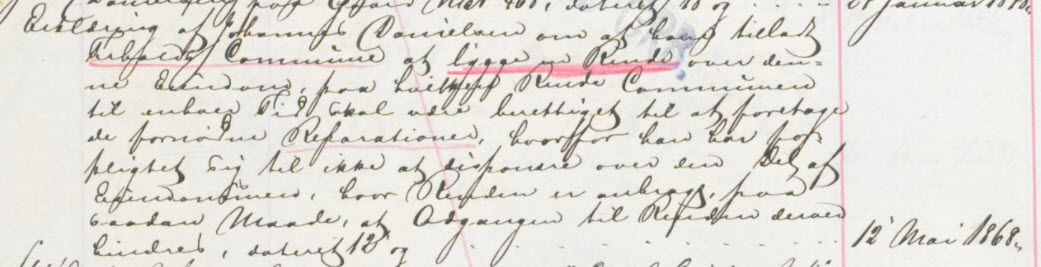 dateret 18 og
Erklæring af Johannes Danielsen om at have tilladt
Communne at lægge en Rende over den-
ne Eiendom, paa hvilken Rende Communen
til enhver Tid skal være berettiget til at foretage
de fornødne Reparationer, hvorfor han har for-
pligtet sig til ikke at disponere over den Del af
Eiendommen, hvor Renden er anbragt, paa
saadan Maade, at Adgangen til Renden derved
hindres, dateret 12 og
12 Mai 1868.